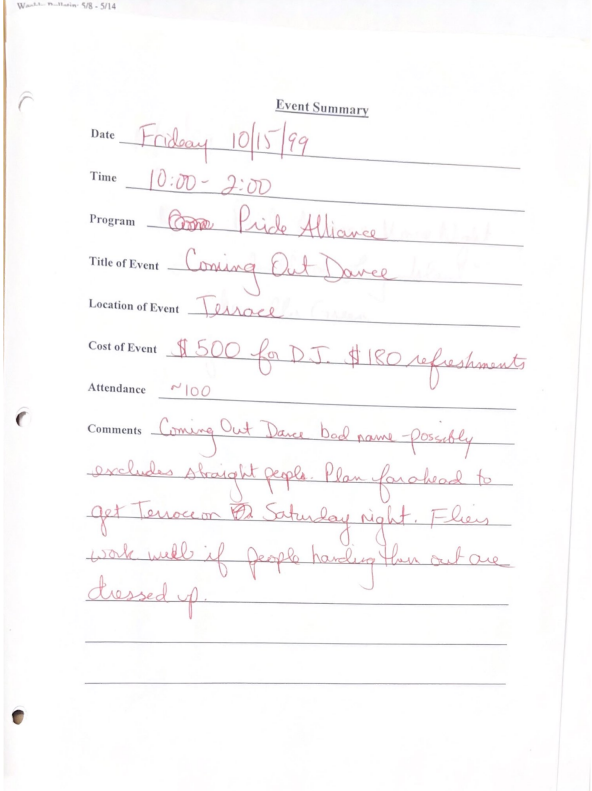 Weekly Bulletin: 5/8 - 5/14
Event Summary
Date Frideay 10/15/99
Time 10:00 - 2:00
Program Pride Alliance
Title of Event Coming Out Dance
Location of Event Terrace
Cost of Event $500 for D.J. $180 refreshments
Attendance ~100
Comments Coming Out Dance bad name - possibly
excludes straight people. Plan far ahead to
get Terrace on Saturday night. Fliers
work well if people handing them out are
dressed up.